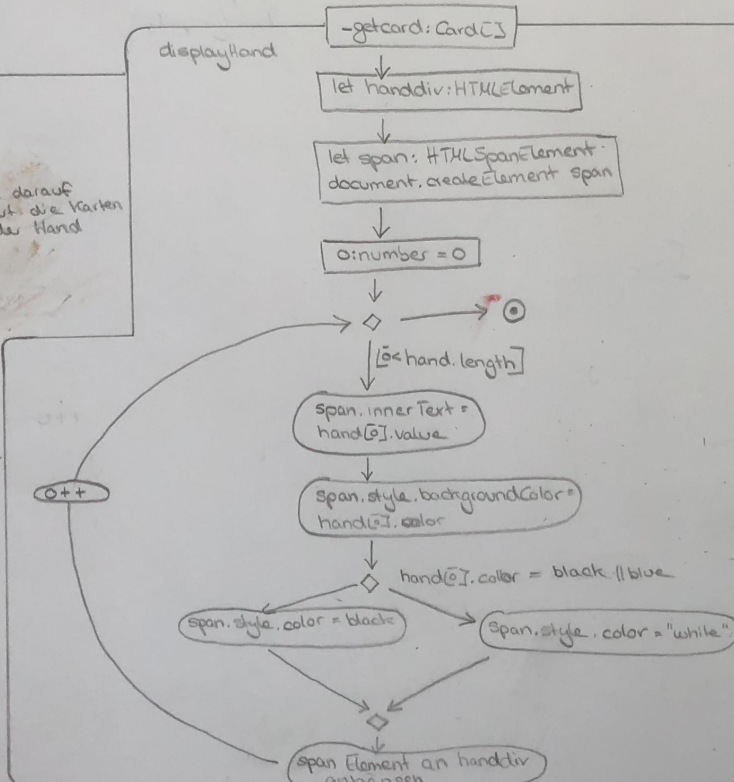 -getcard: Card[]
displayHand
let handdiv: HTMLElement
let span: HTMLSpanElement
document.createElement span
darauf
die Karten
Hand
o:number = 0
[o<hand.length]
span.innerText =
hand[o].value
o++
span.style.backgroundColor=
hand[o].color
hand[o].collor = black || blue
span.style.color = black
span.style.color = "while"
span Element an handdiv